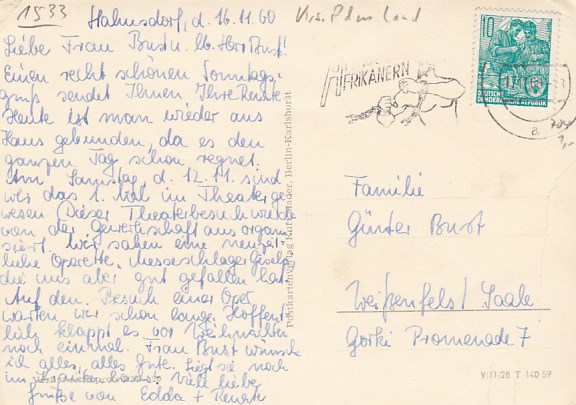 1533
Hahnsdorf, d. 16.11.60
Liebe Frau Bust u. lb. Herr Bust!
Einen recht schönen Sonntags-
gruß sendet Ihnen Ihre Renate
Heute ist man wieder ans
Haus gebunden, da es den
ganzen Tag schon regnet.
Am Samstag d. 12.11. sind
wir das 1. mal im Theater ge
wesen (Dieser Theaterbesuch wurde
von der Gewerkschaft aus organi
siert. Wir sahen eine neuzeit-
liche Operette, Messeschlager Gisela,
die uns aber gut gefallen hat.
Auf den Besuch einer Oper
warten wir schon lange. Hoffent-
lich klappt es vor Weihnachten
noch einmal. Frau Bust wünsche
ich alles, alles Gute. Liegt sie noch
im Krankenhaus? Viele liebe
Grüße von Edda + Renate
Postkartenverlag Berlin-Karlshorst
AFRIKANERN
10
DEUTSCHE
DEMOKRATISCHE REPUBLIK
Familie
Günter Bust
Weißenfels / Saale
Gorki Promenade 7
V/11/28 T 140 57